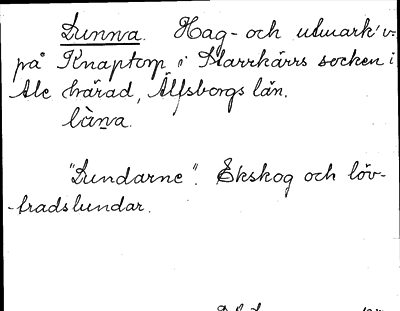 Lunna. Hag- och utmark
på Knaptorp i Starrkärrs socken i
Ale härad, Älfsborgs län.
làn̠a.
"Lundarne". Ekskog och löv-
-trädslundar.